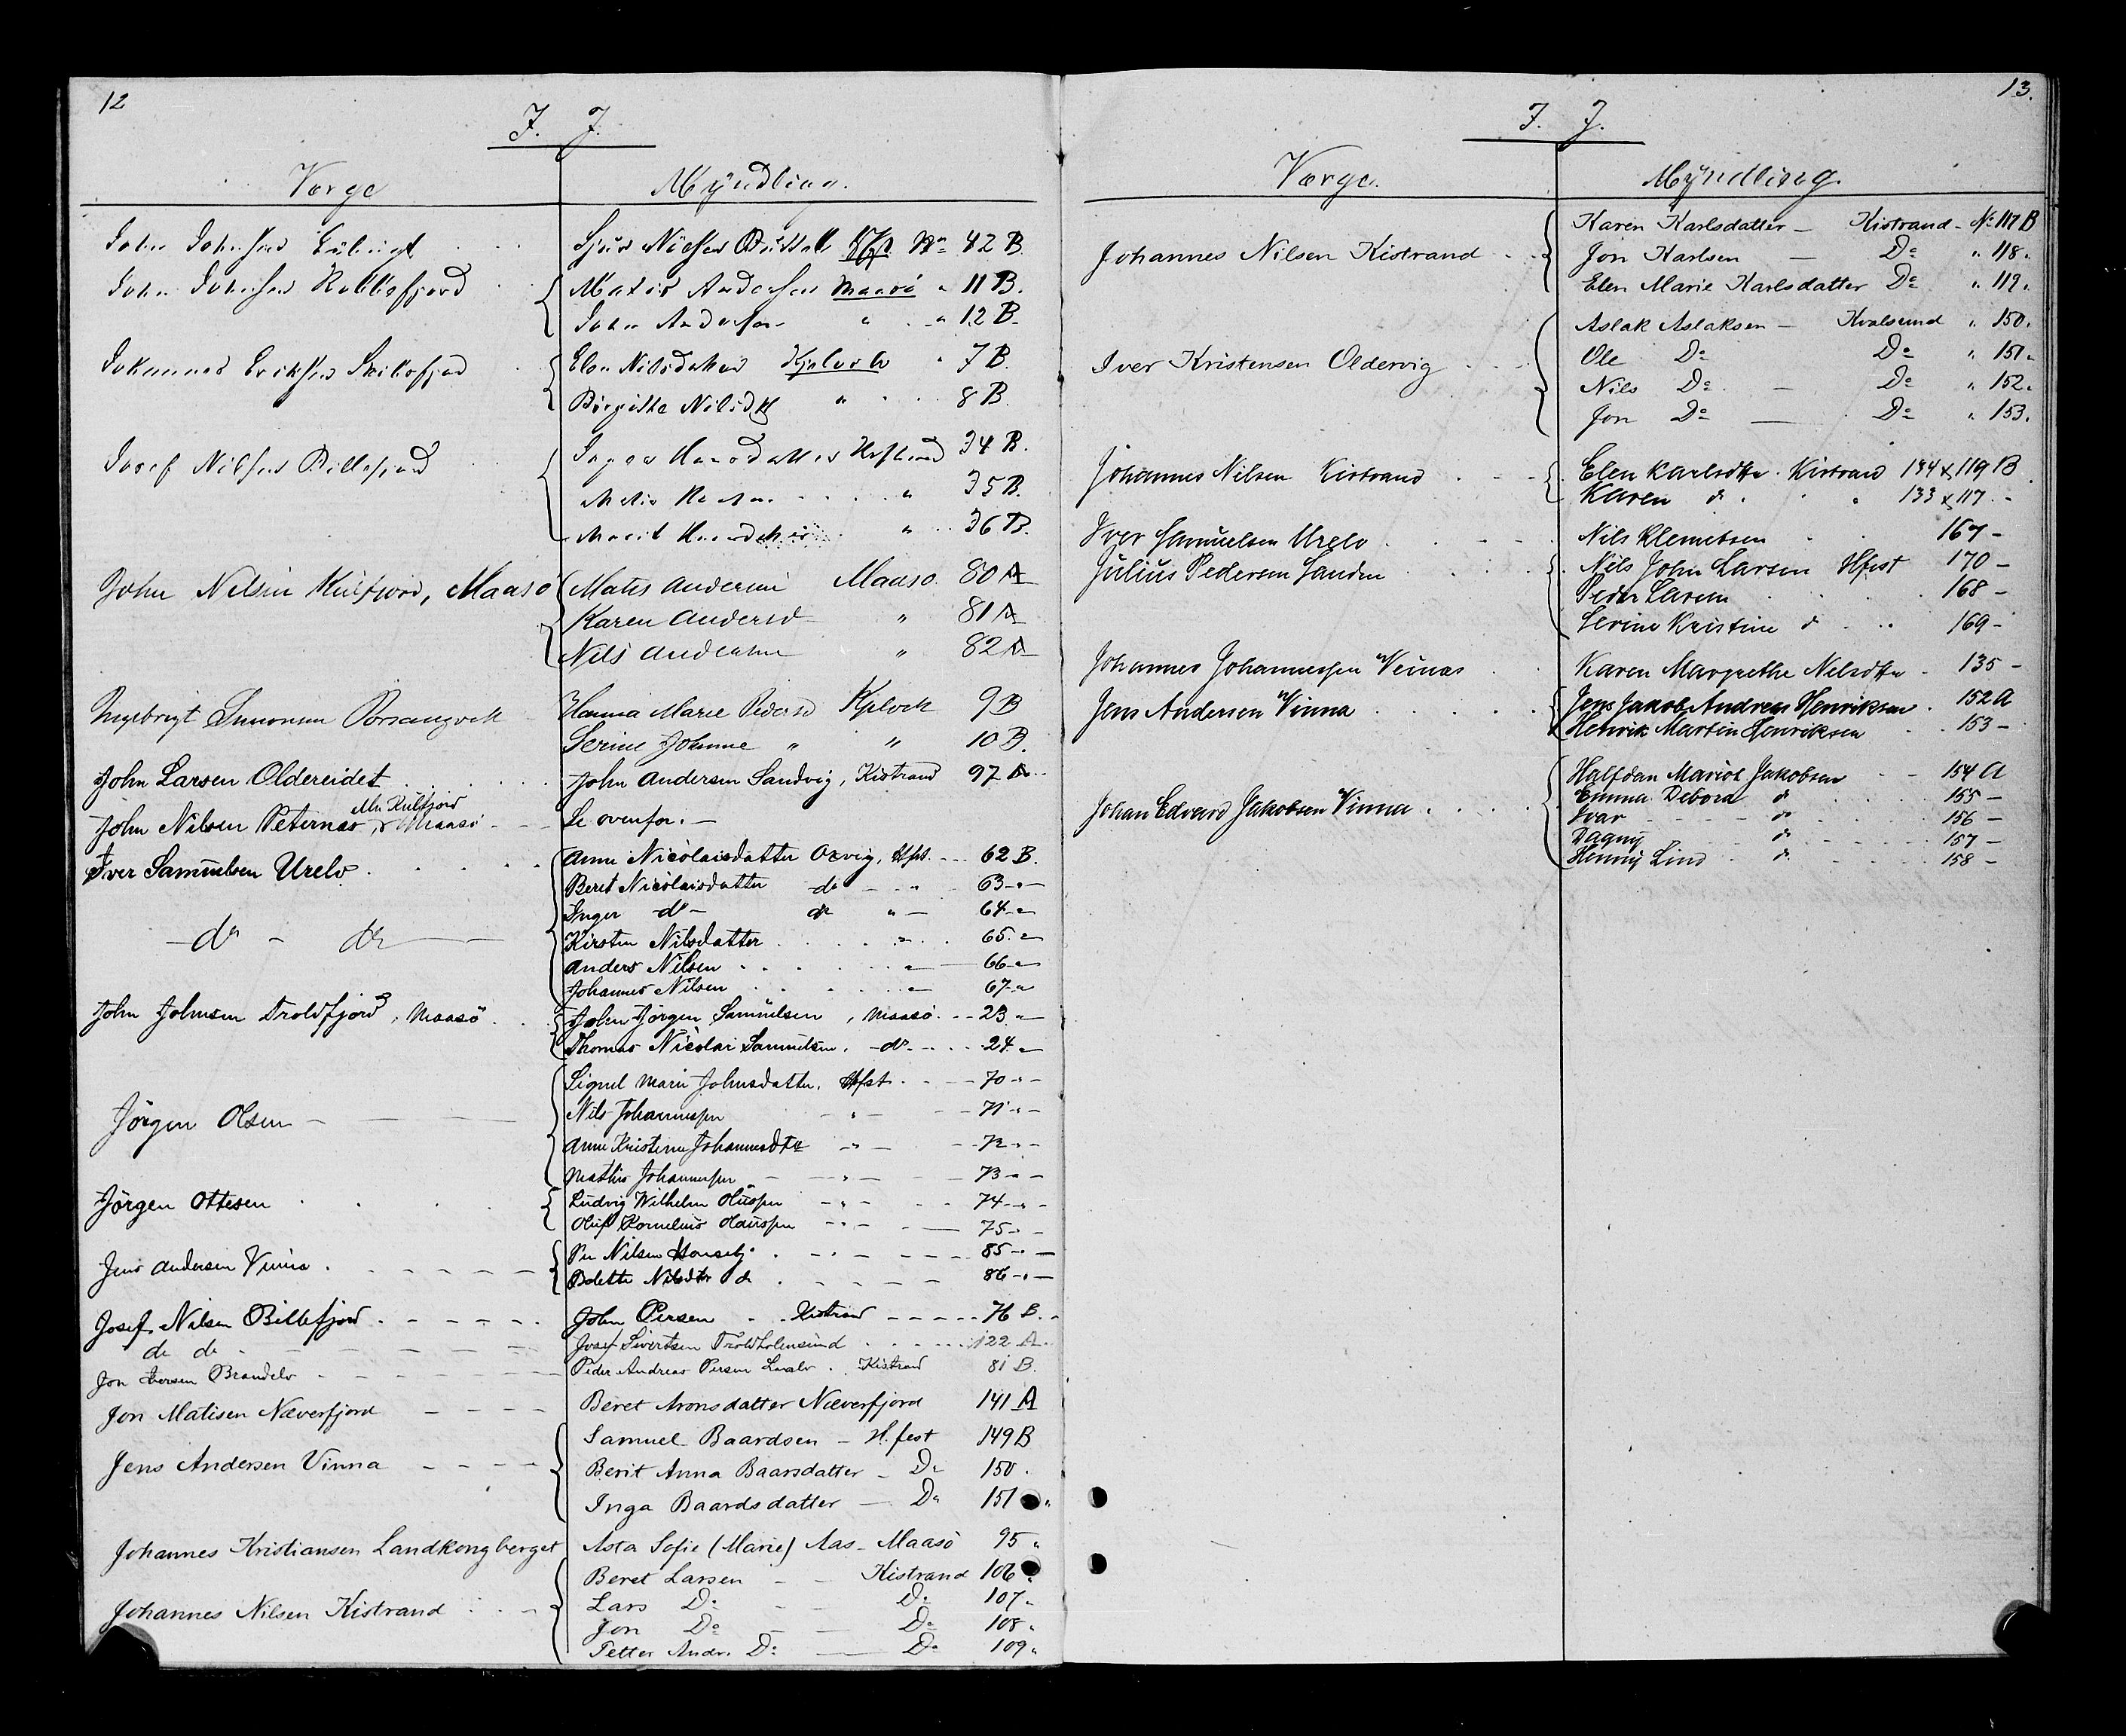 12
I. J.
Værge Myndling.
John Johnsen Nielsen 42 B.
John Johnsen Kobbefjord Matis Andersen Maasö " 11 B.
John Andersen " " 12 B.
Johannes Eriksen Elen Nilsdatter Kjelvik " 7 B.
Birgitte Nilsd " 8 B.
Josef Nilsen Billefjord Inger 34 B.
" 35 B.
Marit " 36 B.
John Nilsen Kulfjord, Maasö Matis Andersen Maasö. 80 A
Karen Andersd " 81 A
Nils Andersen " 82 A
Ingebrigt Simonsen Porsangvik Hanna Marie Pedersd Kjelvik 9 B
Serine Johanne " " 10 B.
John Larsen Oldereidet John Andersen Sandvig, Kistrand 97 A
John Nilsen Peternæs, Kulfjord Maasö Se ovenfor. —
Iver Samuelsen Urelv Anne Nicolaisdatter Oxvig, Hfst. 62 B.
Beret Nicolaisdatter do " 63 "
— do — do — Inger do — do " 64 "
Kirsten Nilsdatter " 65 "
Anders Nilsen " 66 "
Johannes Nilsen " 67 "
John Johnsen Troldfjord, Maasö John Jörgen Samuelsen, Maasö 23 "
Thomas Nicolai Samuelsen, do 24 "
Jörgen Olsen — Signel Marie Johnsdatter, Hfst. 70 "
Nils Johannessen " 71 "
Anne Kristine Johannesdtr " 72 "
Mathis Johannessen " 73 "
Jörgen Ottesen Ludvig Wilhelm " 74 "
Oluf Kornelius " 75 "
Jens Andersen Vinna Per Nilsen " 85 "
Bolette Nilsdtr do 86 "
Josef Nilsen Billefjord John Persen Kistrand 76 B.
do do Josef Sivertsen Troldholmsund 122 A
Jon Iversen Brandelv Peder Andreas Persen Kistrand 81 B.
Jon Matisen Næverfjord Beret Aronsdatter Næverfjord 141 A
Jens Andersen Vinna Samuel Baardsen — H.fest 149 B
Berit Anna Baarsdatter — Do 150 "
Inga Baardsdatter — Do 151 "
Johannes Kristiansen Landkongberget Asta Sofie (Marie) Aas - Maasö 95 "
Johannes Nilsen Kistrand Beret Larsen — Kistrand 106 "
Lars Do Do 107 "
Jon Do Do 108 "
Petter Andr. Do — Do 109 "
13.
I. J.
Værge. Myndling.
Johannes Nilsen Kistrand Karen Karlsdatter — Kistrand - No 117 B
Jon Karlsen — Do " 118 "
Elen Marie Karlsdatter Do " 119 "
Iver Kristensen Oldervig Aslak Aslaksen — Kvalsund " 150 "
Ole Do Do " 151 "
Nils Do — Do " 152 "
Jon Do — Do " 153 "
Johannes Nilsen Kistrand Elen Karlsdtr. Kistrand 134 x 119 B
Karen do " 133 x 117 "
Iver Samuelsen Urelv Nils Klemetsen 167 —
Julius Pedersen Sanden Nils John Larsen Hfest 170 —
Peder Larsen 168 —
Serine Kristine do 169 —
Johannes Johannessen Veinæs Karen Margrethe Nilsdtr 135 —
Jens Andersen Vinna Jens Jakob Andreas Henriksen 152 A
Henrik Martin Henriksen 153 —
Johan Edvard Jakobsen Vinna Halfdan Marius Jakobsen 154 A
Emma Debora do 155 —
Ivar do 156 —
Dagny do 157 —
Henny Lind do 158 —